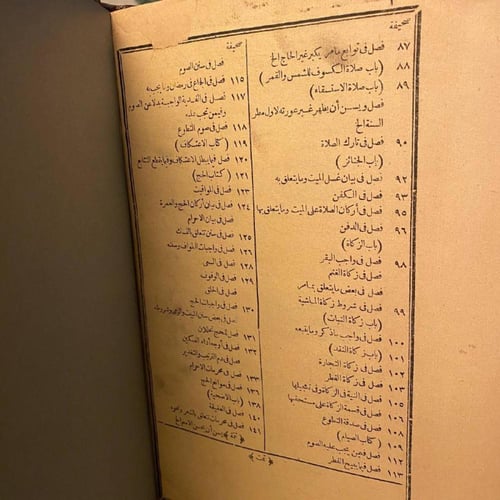 صحيفة
٨٧ فصل فى توابع مامر يكبر غير الحاج الخ
٨٨ (باب صلاة الكسوف للشمس والقمر)
٨٩ (باب صلاة الاستسقاء)
فصل ويسن أن يظهر غير عورته لاول مطر
السنة الخ
٩٠ فصل فى تارك الصلاة
(باب الجنائز)
٩٢ فصل فى بيان غسل الميت وما يتعلق به
٩٣ فصل فى الكفن
٩٥ فصل فى أركان الصلاة على الميت وما يتعلق بها
٩٦ فصل فى الدفن
(باب الزكاة)
٩٨ فصل فى واجب البقر
فصل فى زكاة الغنم
فصل فى بعض ما يتعلق بمامر
٩٩ فصل فى شروط زكاة الماشية
(باب زكاة النبات)
١٠٠ فصل فى واجب ماذكر وما يتبعه
١٠١ (باب زكاة النقد)
١٠٢ فصل فى زكاة التجارة
١٠٣ فصل فى زكاة الفطر
١٠٥ فصل فى النية فى الزكاة وفى تعجيلها
١٠٦ فصل فى قسمة الزكاة على مستحقيها
١٠٨ فصل فى صدقة التطوع
١٠٩ (كتاب الصيام)
١١٢ فصل فيمن يجب عليه الصوم
١١٣ فصل فيما يبيح الفطر
صحيفة
فصل فى سنن الصوم
١١٥ فصل فى الجماع فى رمضان وما يجب به
١١٧ فصل فى الفدية الواجبة بدلا عن الصوم
وفيمن تجب عليه
١١٨ فصل فى صوم التطوع
١١٩ (كتاب الاعتكاف)
١٢٠ فصل فيما يبطل الاعتكاف وفيما يقطع التتابع
١٢١ (كتاب الحج)
١٢٣ فصل فى المواقيت
١٢٤ فصل فى بيان أركان الحج والعمرة
فصل فى بيان الاحرام
١٢٥ فصل فى سنن تتعلق بالنسك
١٢٦ فصل فى واجبات الطواف وسننه
١٢٨ فصل فى السعى
١٢٩ فصل فى الوقوف
فصل فى الحلق
١٣٠ فصل فى واجبات الحج
فصل فى بعض سنن المبيت والرمى وشروطه
١٣١ فصل للحج تحللان
١٣٢ فصل فى أوجه أداء النسكين
فصل فى دم الترتيب والتقدير
١٣٣ فصل فى محرمات الاحرام
١٣٧ فصل فى موانع الحج
١٣٨ (باب الاضحية)
١٤٠ فصل فى العقيقة
١٤١ فصل فى محرمات تتعلق بالشعر ونحوه
﴿تمت﴾